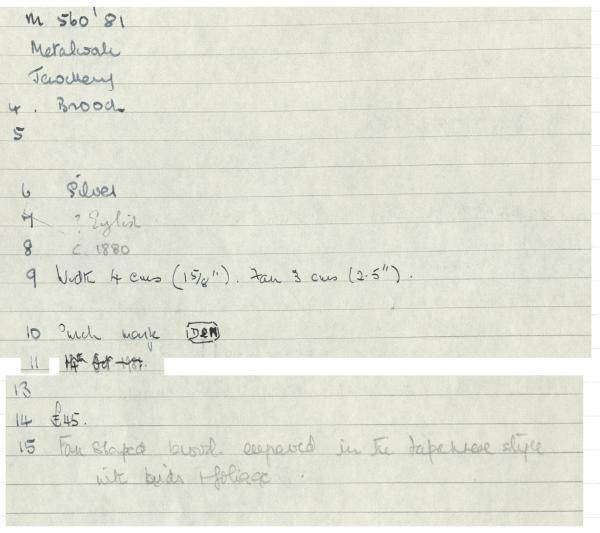 M 560'81
Metalwork
Jewellery
4. Brooch
5
6 Silver
7 ? English
8 c. 1880
9 Width 4 cms (1 5/8"). Fan 3 cms (2.5").
10 mark DeM
11
13
14 £45.
15 Fan shaped brooch engraved in the Japanese style
with birds + foliage.